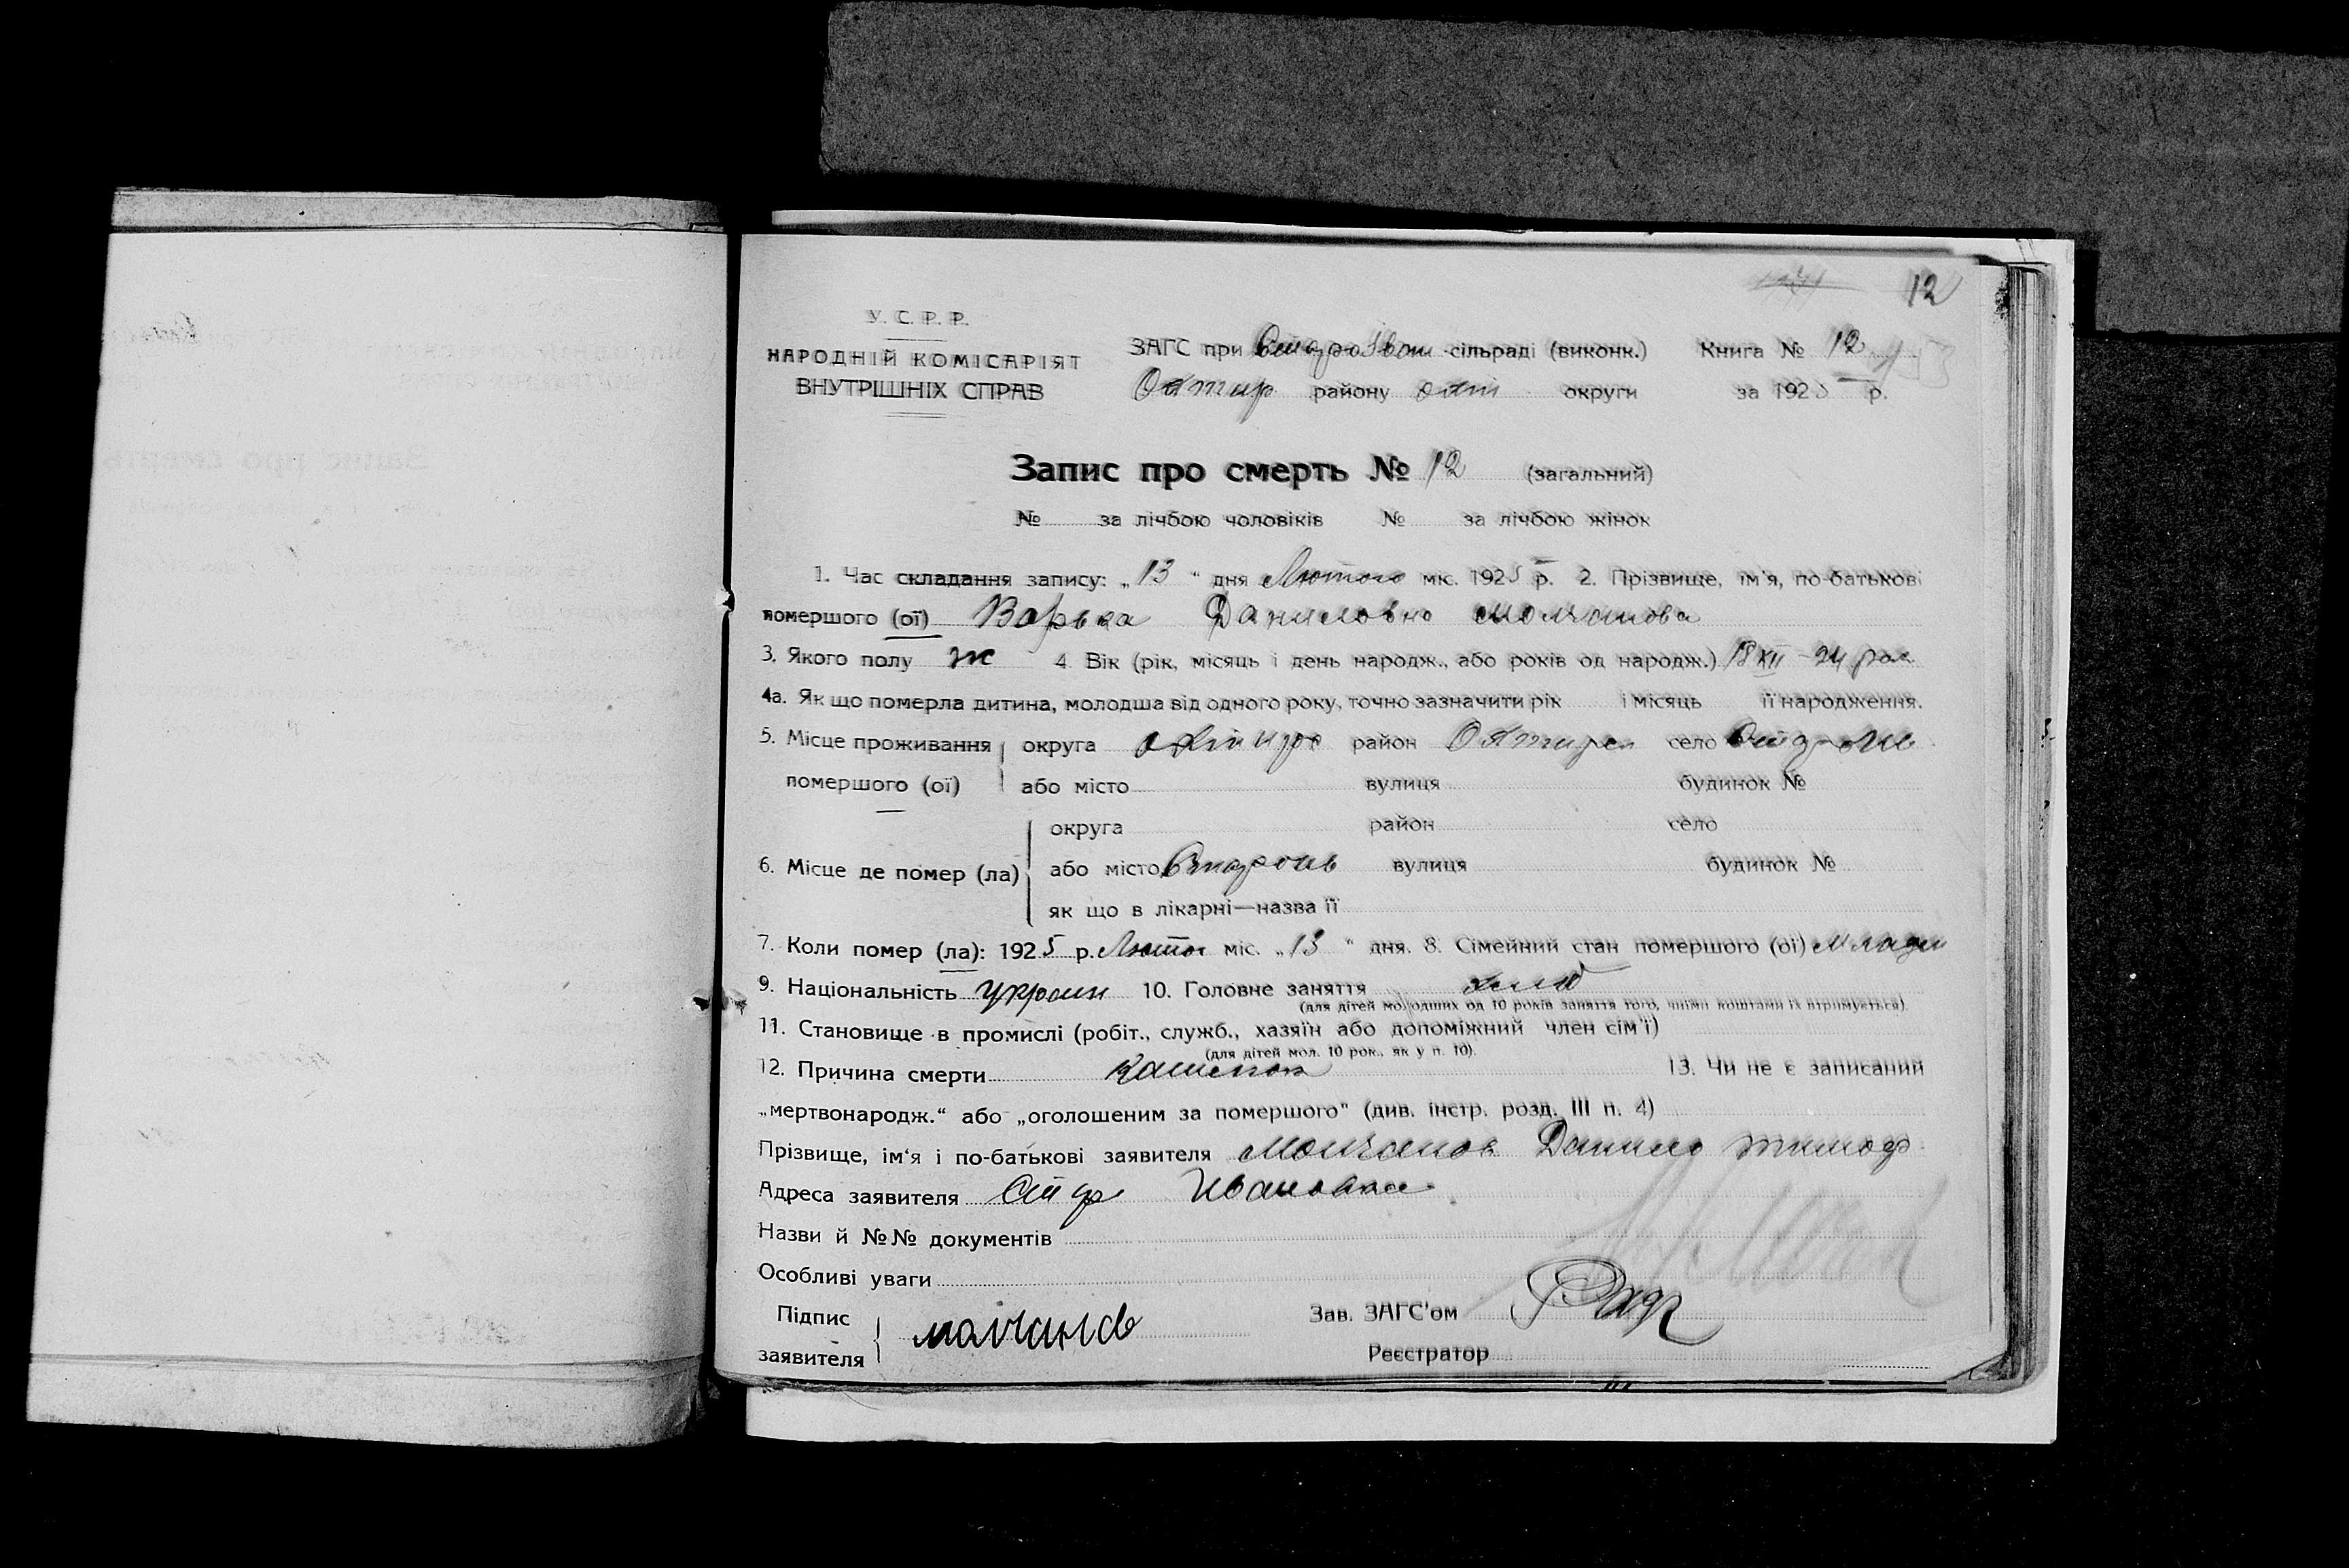 12
У. С. Р. Р.
НАРОДНІЙ КОМІСАРІЯТ
ВНУТРІШНІХ СПРАВ
ЗАГС при СтароІван сільраді (виконк.) Книга № 12
Охтир району охт округи за 1925 р.
Запис про смерть № 12 (загальний)
№ за лічбою чоловіків № за лічбою жінок
1. Час складання запису: „13“ дня Лютого міс. 1925 р. 2. Прізвище, ім'я, по-батькові
помершого (ої) Варька Даниловна Молчанова
3. Якого полу ж 4. Вік (рік, місяць і день народж., або років од народж.) 18 XII 24 рок
4а. Як що померла дитина, молодша від одного року, точно зазначити рік і місяць її народження.
5. Місце проживання округа район село
помершого (ої) або місто вулиця будинок №
округа район село
6. Місце де помер (ла) або місто вулиця будинок №
як що в лікарні—назва її
7. Коли помер (ла): 1925 р. Лютог міс. „13“ дня. 8. Сімейний стан помершого (ої)
9. Національність Украин 10. Головне заняття хліб
(для дітей молодших од 10 років заняття того, чиїми коштами їх втримується).
11. Становище в промислі (робіт., служб., хазяїн або допоміжний член сім'ї)
(для дітей мол. 10 рок., як у п. 10).
12. Причина смерти Кашелок 13. Чи не є записаний
„мертвонародж.“ або „оголошеним за помершого“ (див. інстр. розд. III п. 4)
Прізвище, ім'я і по-батькові заявителя Молчанов Данило тимоф
Адреса заявителя Стар Ивановка
Назви й №№ документів
Особливі уваги
Підпис
заявителя молчанов
Зав. ЗАГС'ом
Реєстратор